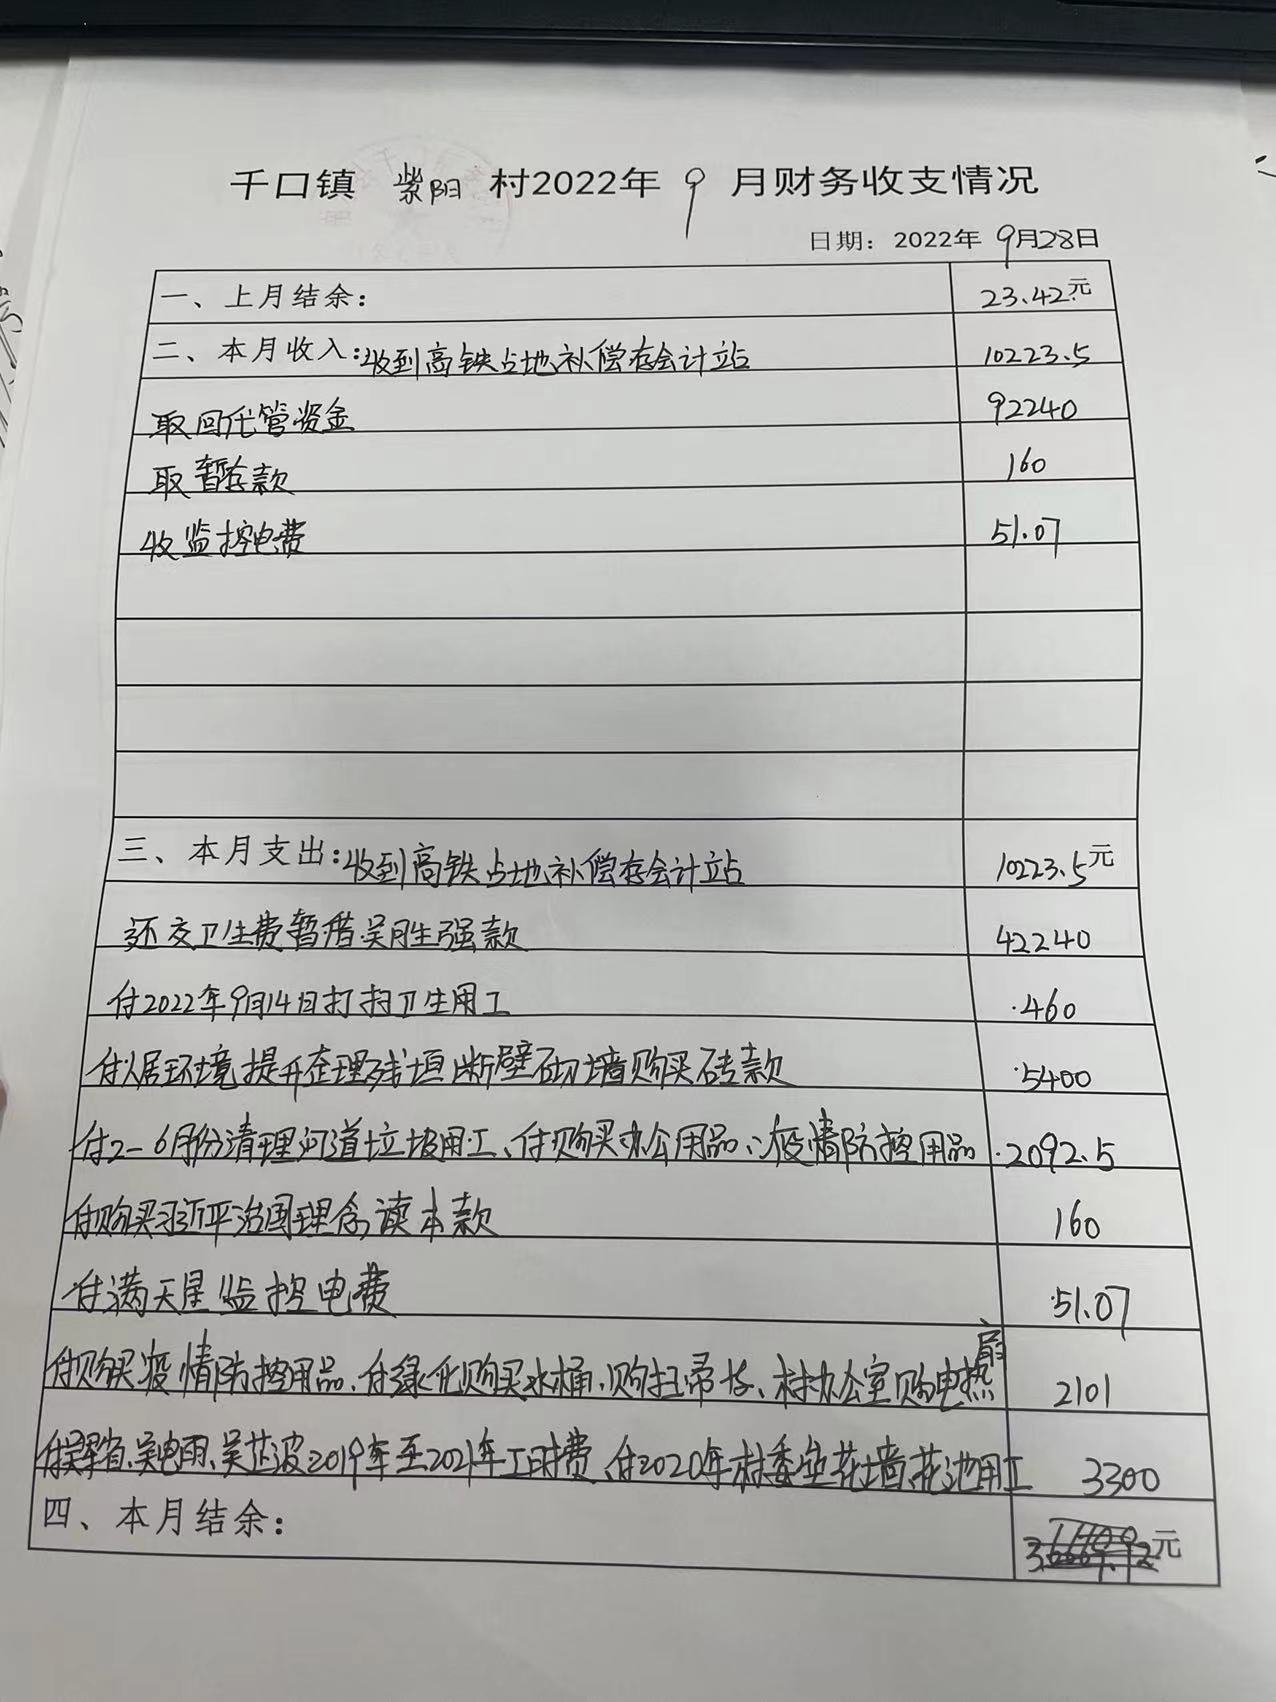 千口镇 紫阳 村2022年 9 月财务收支情况
日期：2022年 9月28日
一、上月结余： 23.42元
二、本月收入：收到高铁占地补偿存会计站 10223.5
取回代管资金 92240
取暂存款 160
收监控电费 51.07
三、本月支出：收到高铁占地补偿存会计站 10223.5元
还交卫生费暂借吴胜强款 42240
付2022年9月14日打扫卫生用工 460
付人居环境提升整理残垣断壁砌墙购买砖款 5400
付2-6月份清理河道垃圾用工、付购买办公用品、疫情防控用品 2092.5
付购买习近平治国理念读本款 160
付满天星监控电费 51.07
付购买疫情防控用品、付绿化购买水桶、购扫帚、村办公室购电热扇 2101
吴电雨、2019年至2021年工时费、付2020年村委垒花墙、花池用工 3300
四、本月结余： 元